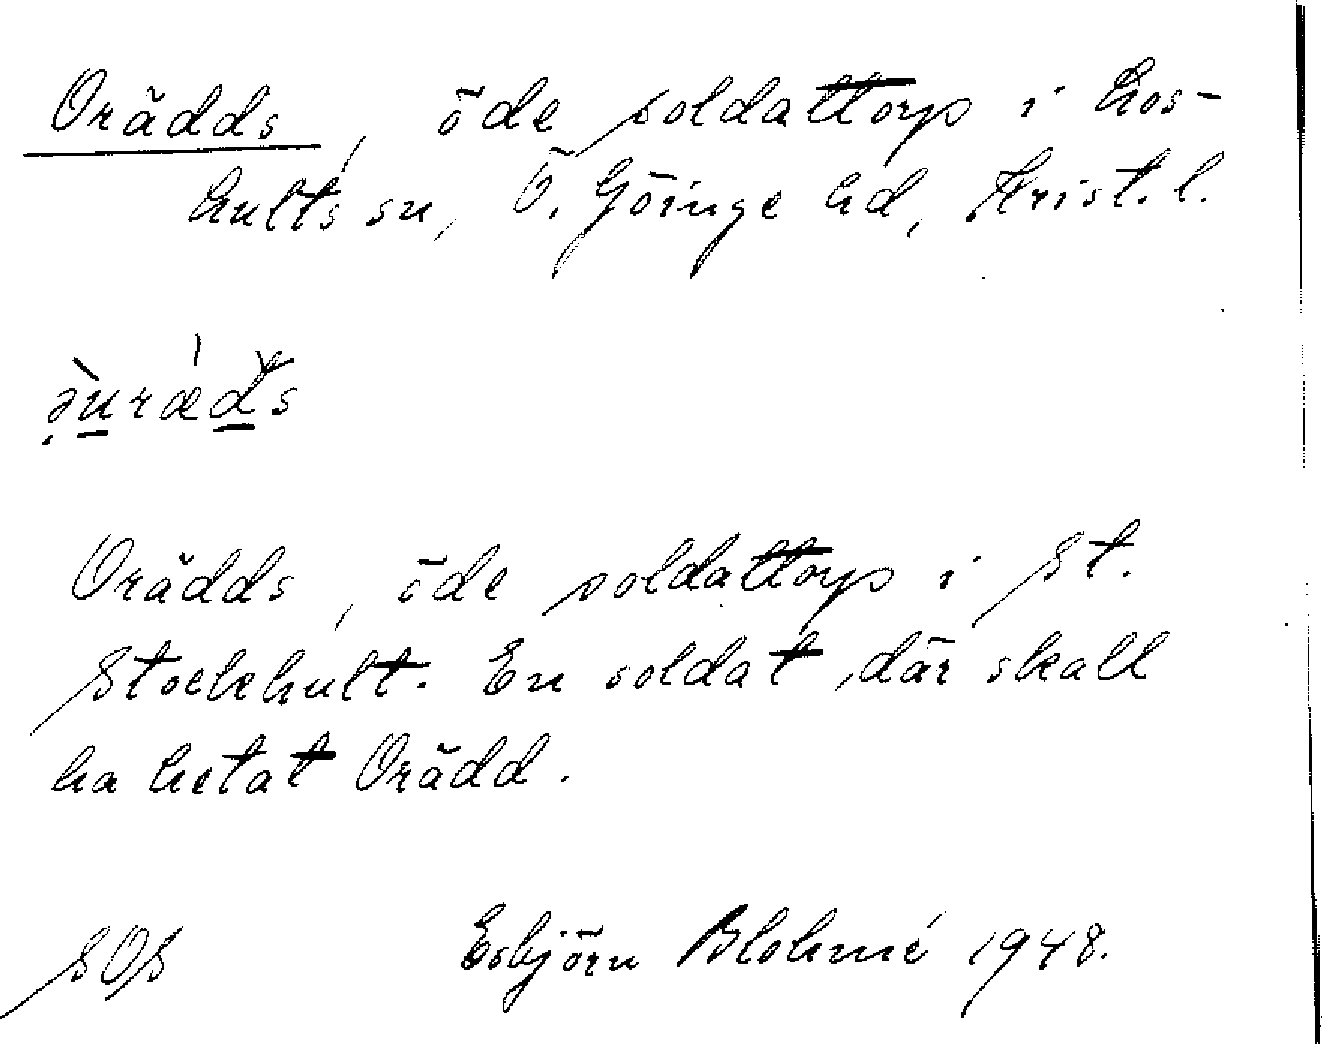 Orädds, öde soldattorp i Hos-
hults sn, Ö. Göinge hd, Krist. l.
Orädds, öde soldattorp i St.
Stockhult. En soldat där skall
ha hetat Orädd.
SOS Esbjörn Blohmé 1948.